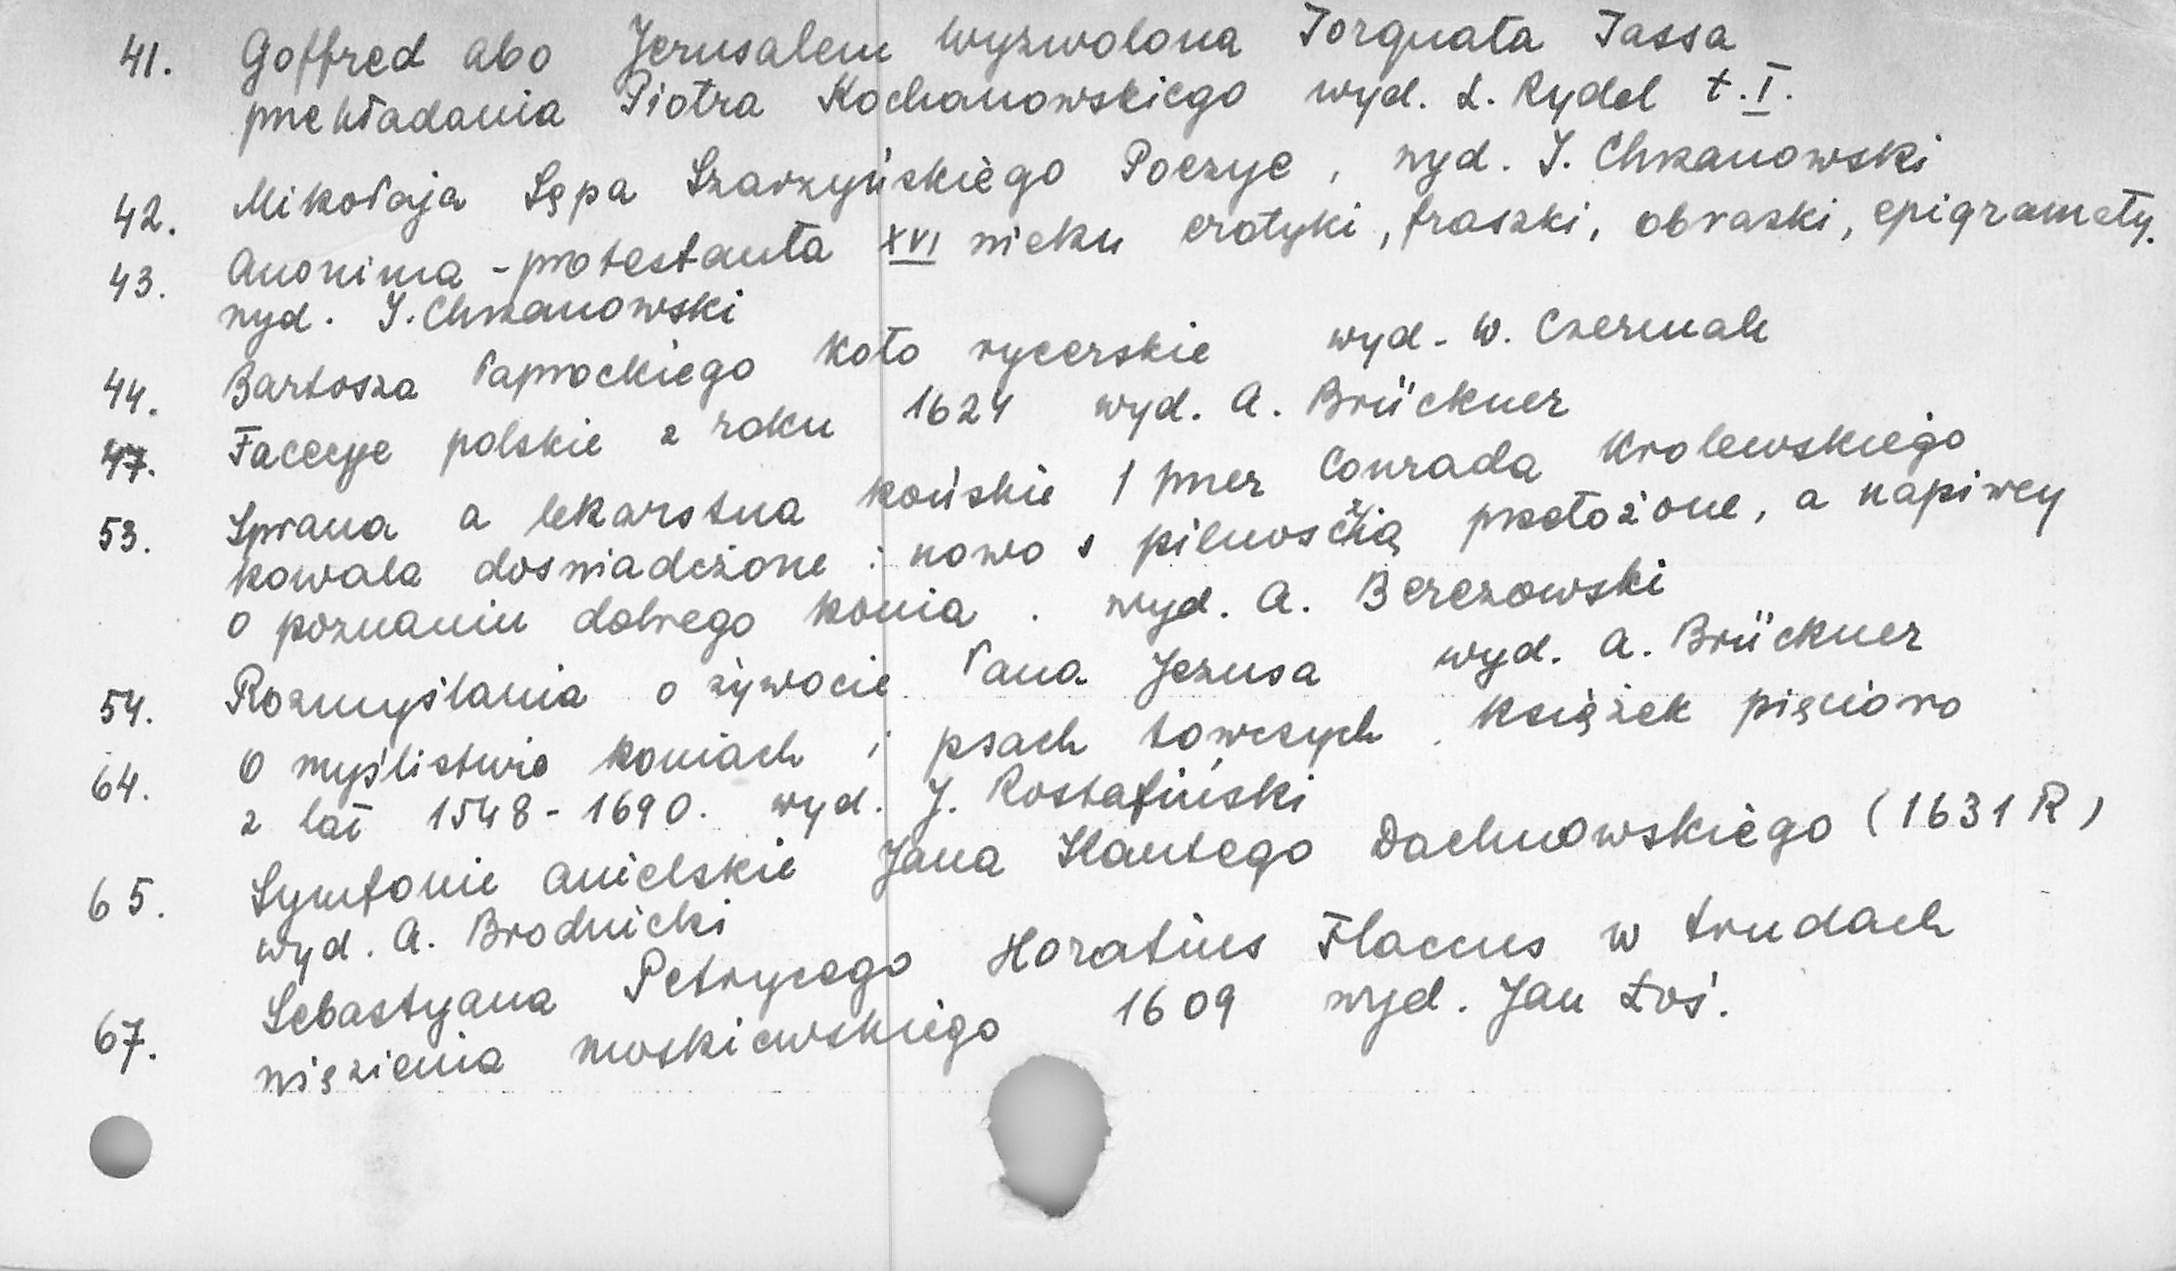 41. Goffred abo Jerusalem wyzwolona Torquata Tassa
przekładania Piotra Kochanowskiego wyd. L. Rydel t. I.
42. Mikołaja Sępa Szarzyńskiego Poezye, wyd. I. Chrzanowski
43. Anonima-protestanta XVI wieku erotyki, fraszki, obrazki, epigramaty.
wyd. I. Chrzanowski
44. Bartosza Paprockiego Koło rycerskie wyd. W. Czermak
47. Facecye polskie z roku 1624 wyd. A. Brückner
53. Sprawa a lekarstwa końskie / przez Conrada Krolewskiego
kowala doswiadczone: nowo s pilnosčią przełożone, a napirwey
o poznaniu dobrego konia. wyd. A. Berezowski
54. Rozmyślania o żywocie Pana Jezusa wyd. A. Brückner
64. O myślistwie koniach i psach łowczych. Książek pięcioro
z lat 1548-1690. wyd. J. Rostafiński
65. Symfonie anielskie Jana Żabczyca Karola Dachnowskiego (1631 R)
wyd. A. Brodnicki
67. Sebastyana Petrycego Horatius Flaccus w trudach
więzienia moskiewskiego 1609 wyd. Jan Łoś.